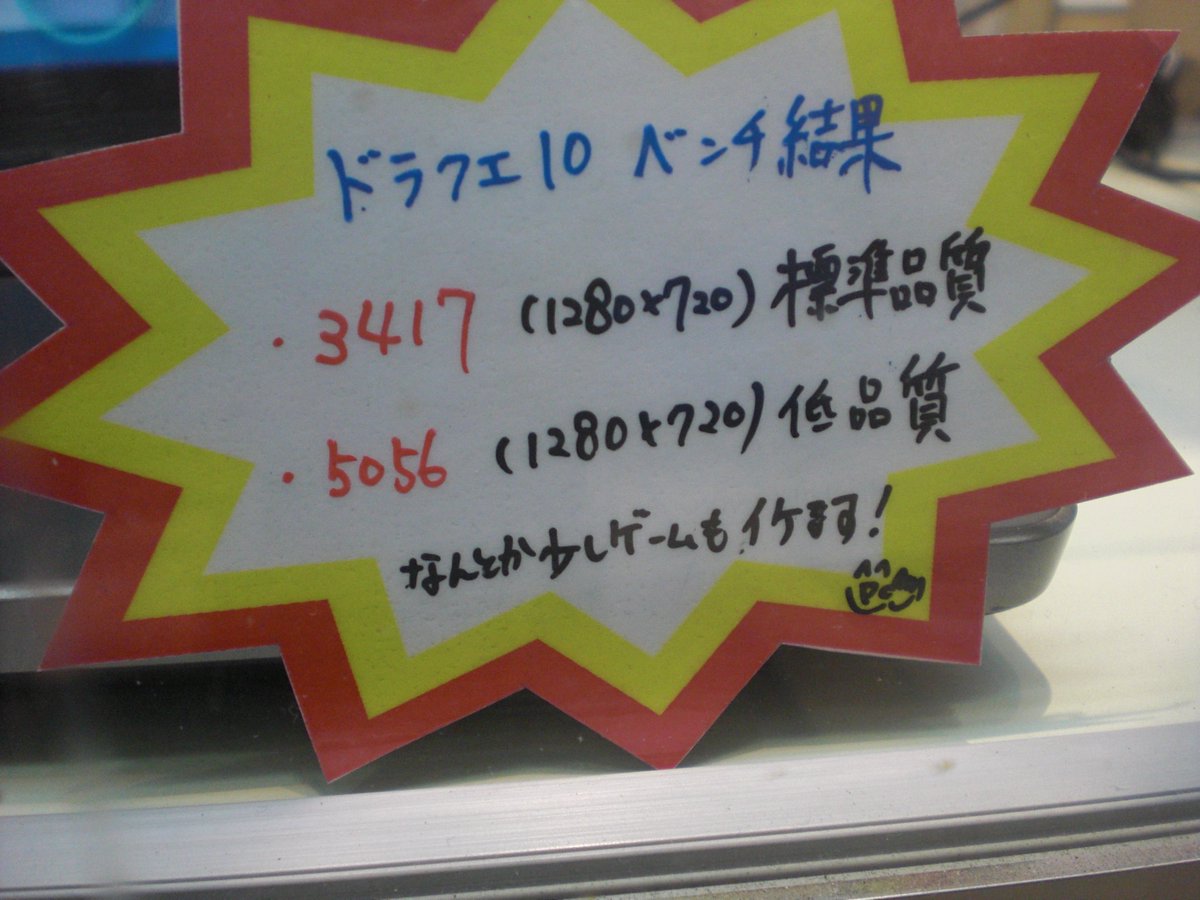 ドラクエ10 ベンチ結果
・3417 (1280×720) 標準品質
・5056 (1280×720) 低品質
なんとか少しゲームもイケます!